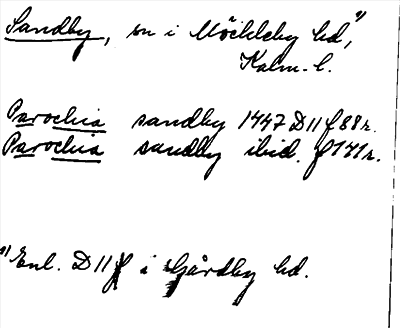 Sandby, sn i Möckleby hd¹⁾,
Kalm. l.
Parochia sandby 1447 D 11 f 88 r.
Parochia sandby ibid. f 141 r.
¹⁾ Enl. D 11 f i Gårdby hd.